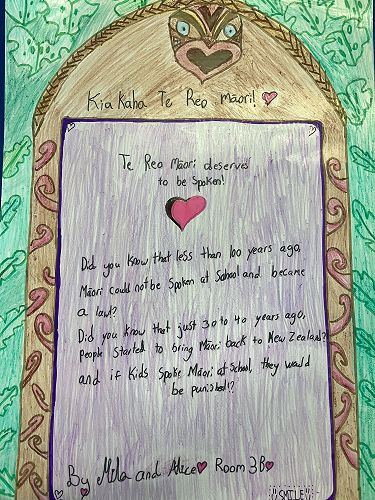 Kia Kaha Te Reo māori!
Te Reo Māori deserves
to be Spoken!
Did you know that less than 100 years ago,
Māori could not be Spoken at School and became
a law?
Did you know that just 30 to 40 years ago,
People Started to bring Māori back to New Zealand?
and if Kids Spoke Māori at School, they would
be punished!?
By Mela and Alice Room 3B
"SMILE"